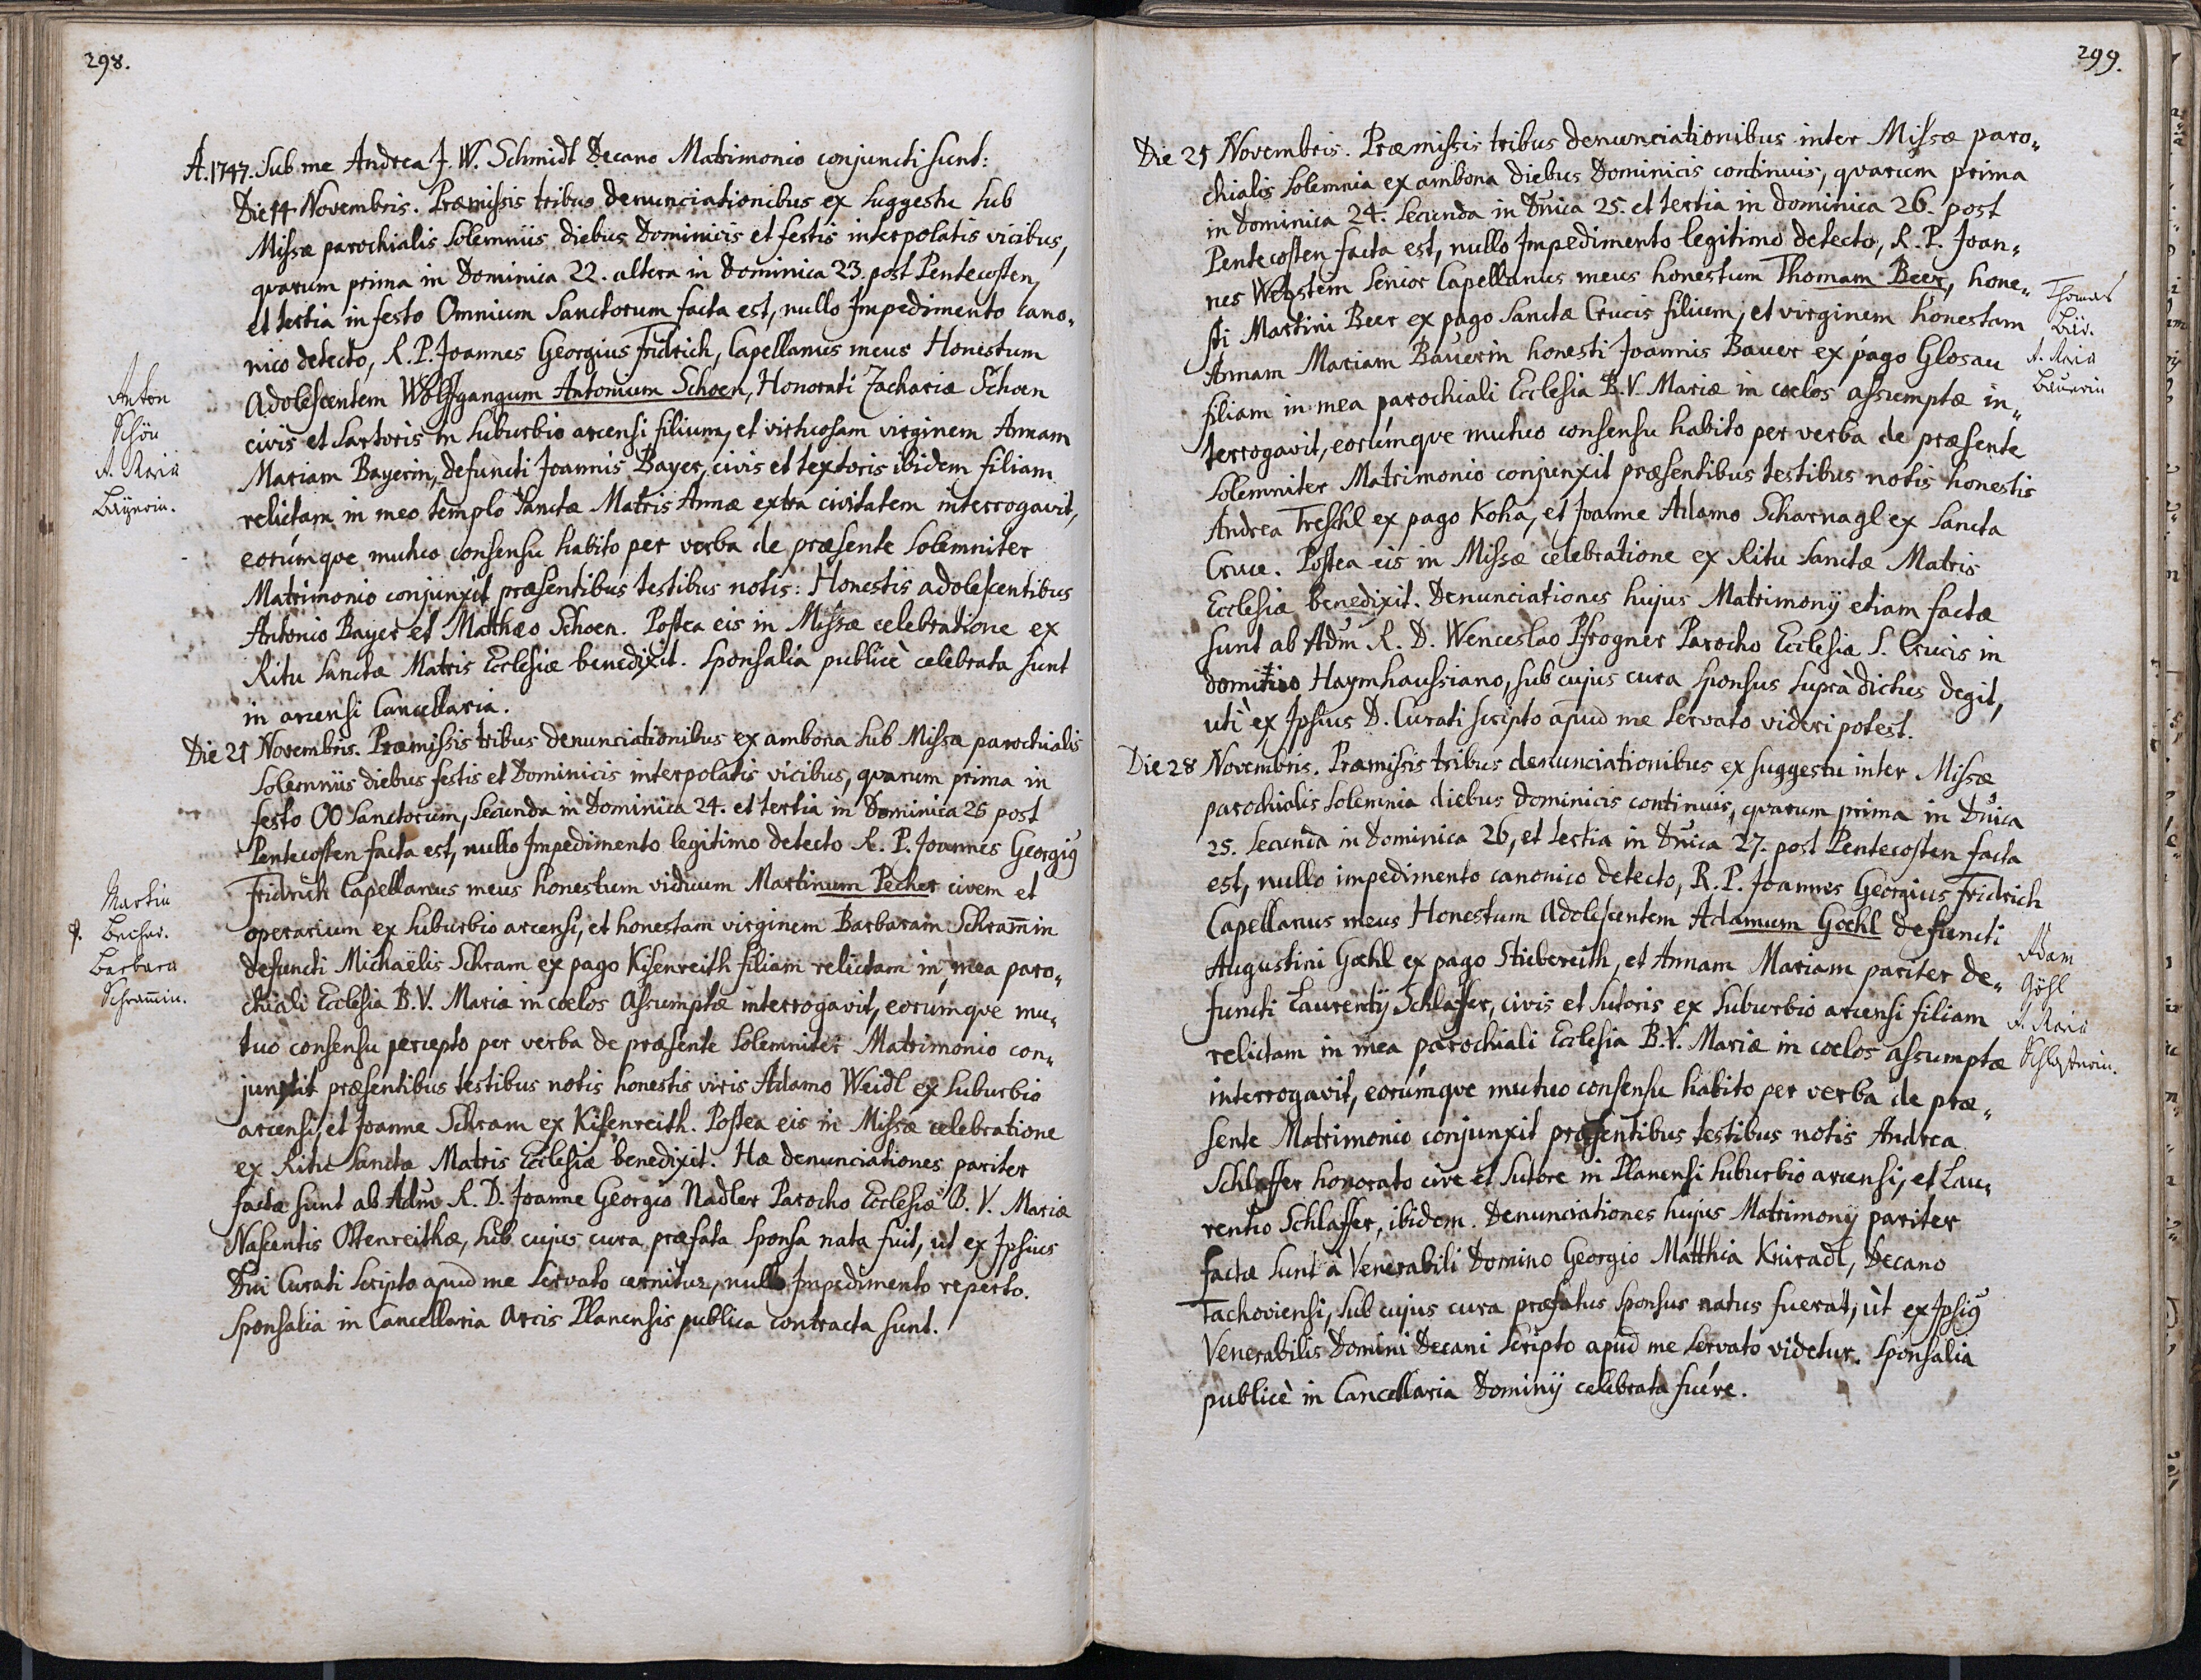 298.
A. 1747. Sub me Andrea J. W. Schmidt Decano Matrimonio conjuncti sunt:
Die 14 Novembris. Præmissis tribus denunciationibus ex suggestu sub
Missæ parochialis solemniis diebus Dominicis et festis interpolatis vicibus,
qvarum prima in Dominica 22. altera in Dominica 23. post Pentecosten,
et tertia in festo Omnium Sanctorum facta est, nullo Impedimento cano„
nico detecto, R. P. Joannes Georgius Fridrich, Capellanus meus Honestum
Adolescentem Wolffgangum Antonium Schoen, Honorati Zachariæ Schoen
civis et Sartoris in suburbio arcensi filium, et virtuosam virginem Annam
Mariam Bayerin, defuncti Joannis Bayer, civis et textoris ibidem filiam
relictam in meo templo Sanctæ Matris Annæ extra civitatem interrogavit,
eorúmqve mutuo consensu habito per verba de præsente solemniter
Matrimonio conjunxit præsentibus testibus notis: Honestis adolescentibus
Antonio Bayer et Matthæo Schoen. Postea eis in Missæ celebratione ex
Ritu Sanctæ Matris Ecclesiæ benedixit. Sponsalia publicè celebrata sunt
in arcensi Cancellaria.
Anton
Schön
A. Maria
Baÿerin.
Die 21 Novembris. Præmissis tribus denunciationibus ex ambona sub Missæ parochialis
solemniis diebus festis et Dominicis interpolatis vicibus, qvarum prima in
festo OO Sanctorum, secunda in Dominica 24. et tertia in Dominica 25 post
Pentecosten facta est, nullo Impedimento legitimo detecto R. P. Joannes Georgiꝰ
Fridrich Capellanus meus honestum viduum Martinum Pecher civem et
operarium ex suburbio arcensi, et honestam virginem Barbaram Schram̄in
defuncti Michaëlis Schram ex pago Kisenreith filiam relictam in mea paro„
chiali Ecclesia B. V. Mariæ in cœlos Assumptæ interrogavit, eorúmqve mu„
tuo consensu percepto per verba de præsente solemniter Matrimonio con„
junxit præsentibus testibus notis honestis viris Adamo Weidl ex suburbio
arcensi, et Joanne Schram ex Kisenreith. Postea eis in Missæ celebratione
ex Ritu Sanctæ Matris Ecclesiæ benedixit. Hæ denunciationes pariter
factæ sunt ab Adm̄ R. D. Joanne Georgio Nadler Parocho Ecclesiæ B. V. Mariæ
Nascentis Ottenreithæ, sub cujus cura præfata Sponsa nata fuit, ut ex Ipsius
Dn̄i Curati scripto apud me servato cernitur, nullo Impedimento reperto.
Sponsalia in Cancellaria Arcis Planensis publica contracta sunt.
Martin
Becher.
Barbara
Schram̄in.
299.
Die 21 Novembris. Præmissis tribus denunciationibus inter Missæ paro„
chialis solemnia ex ambona diebus Dominicis continuis, qvarum prima
in Dominica 24. secunda in Dn̄ica 25. et tertia in dominica 26. post
Pentecosten facta est, nullo Impedimento legitimo detecto, R. P. Joan„
nes Senior Capellanus meus honestum Thomam Beer, hone„
sti Martini Beer ex pago Sanctæ Crucis filium, et virginem honestam
Annam Mariam Bauerin honesti Joannis Bauer ex pago Glosau
filiam in mea parochiali Ecclesia B. V. Mariæ in cœlos assumptæ in„
terrogavit, eorúmqve mutuo consensu habito per verba de præsente
solemniter Matrimonio conjunxit præsentibus testibus notis honestis
Andrea Treschl ex pago Koha, et Joanne Adamo Scharnagl ex Sancta
Cruce. Postea eis in Missæ celebratione ex Ritu Sanctæ Matris
Ecclesiæ benedixit. Denunciationes hujus Matrimonÿ etiam factæ
sunt ab Adm̄ R. D. Wenceslao Pfrogner Parocho Ecclesiæ S. Crucis in
Haymhaussiano, sub cujus cura Sponsus suprà dictus degit,
uti ex Ipsius D. Curati scripto apud me servato videri potest.
Thomas
Bär.
A. Maria
Bauerin
Die 28 Novembris. Præmissis tribus denunciationibus ex suggestu inter Missæ
parochialis solemnia diebus dominicis continuis, qvarum prima in Dn̄ica
25. secunda in Dominica 26, et tertia in Dn̄ica 27. post Pentecosten facta
est, nullo impedimento canonico detecto, R. P. Joannes Georgius Fridrich
Capellanus meus Honestum Adolescentem Adamum Goehl defuncti
Augustini Goehl ex pago Stiebereith, et Annam Mariam pariter de„
functi Laurentÿ Schlaffer, civis et sutoris ex suburbio arcensi filiam
relictam in mea parochiali Ecclesia B. V. Mariæ in cœlos assumptæ
interrogavit, eorúmqve mutuo consensu habito per verba de præ„
sente Matrimonio conjunxit præsentibus testibus notis Andrea
Schlaffer honorato cive et sutore in Planensi suburbio arcensi, et Lau„
rentio Schlaffer, ibidem. Denunciationes hujus Matrimonÿ pariter
factæ sunt à Venerabili Domino Georgio Matthia Kniradl, Decano
Tachoviensi, sub cujus cura præfatus Sponsus natus fuerat, ùt ex Ipsiꝰ
Venerabilis Domini Decani scripto apud me servato videtur. Sponsalia
publicè in Cancellaria Dominÿ celebrata fuére.
Adam
Göhl
A. Maria
Schlafferin.